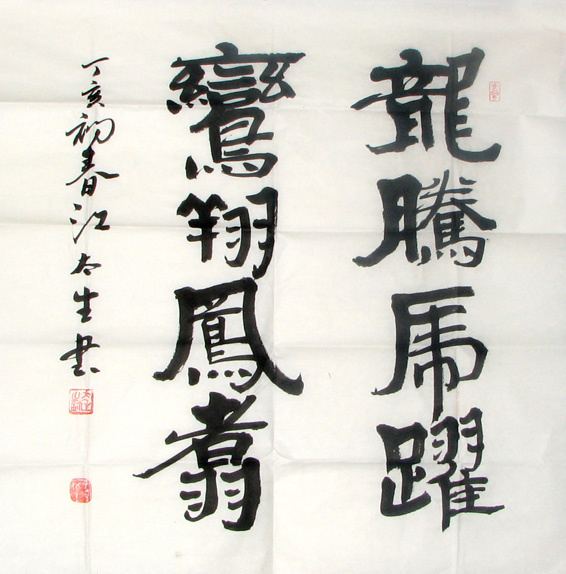 龍騰虎躍
鸞翔鳳翥
丁亥初春江太生書